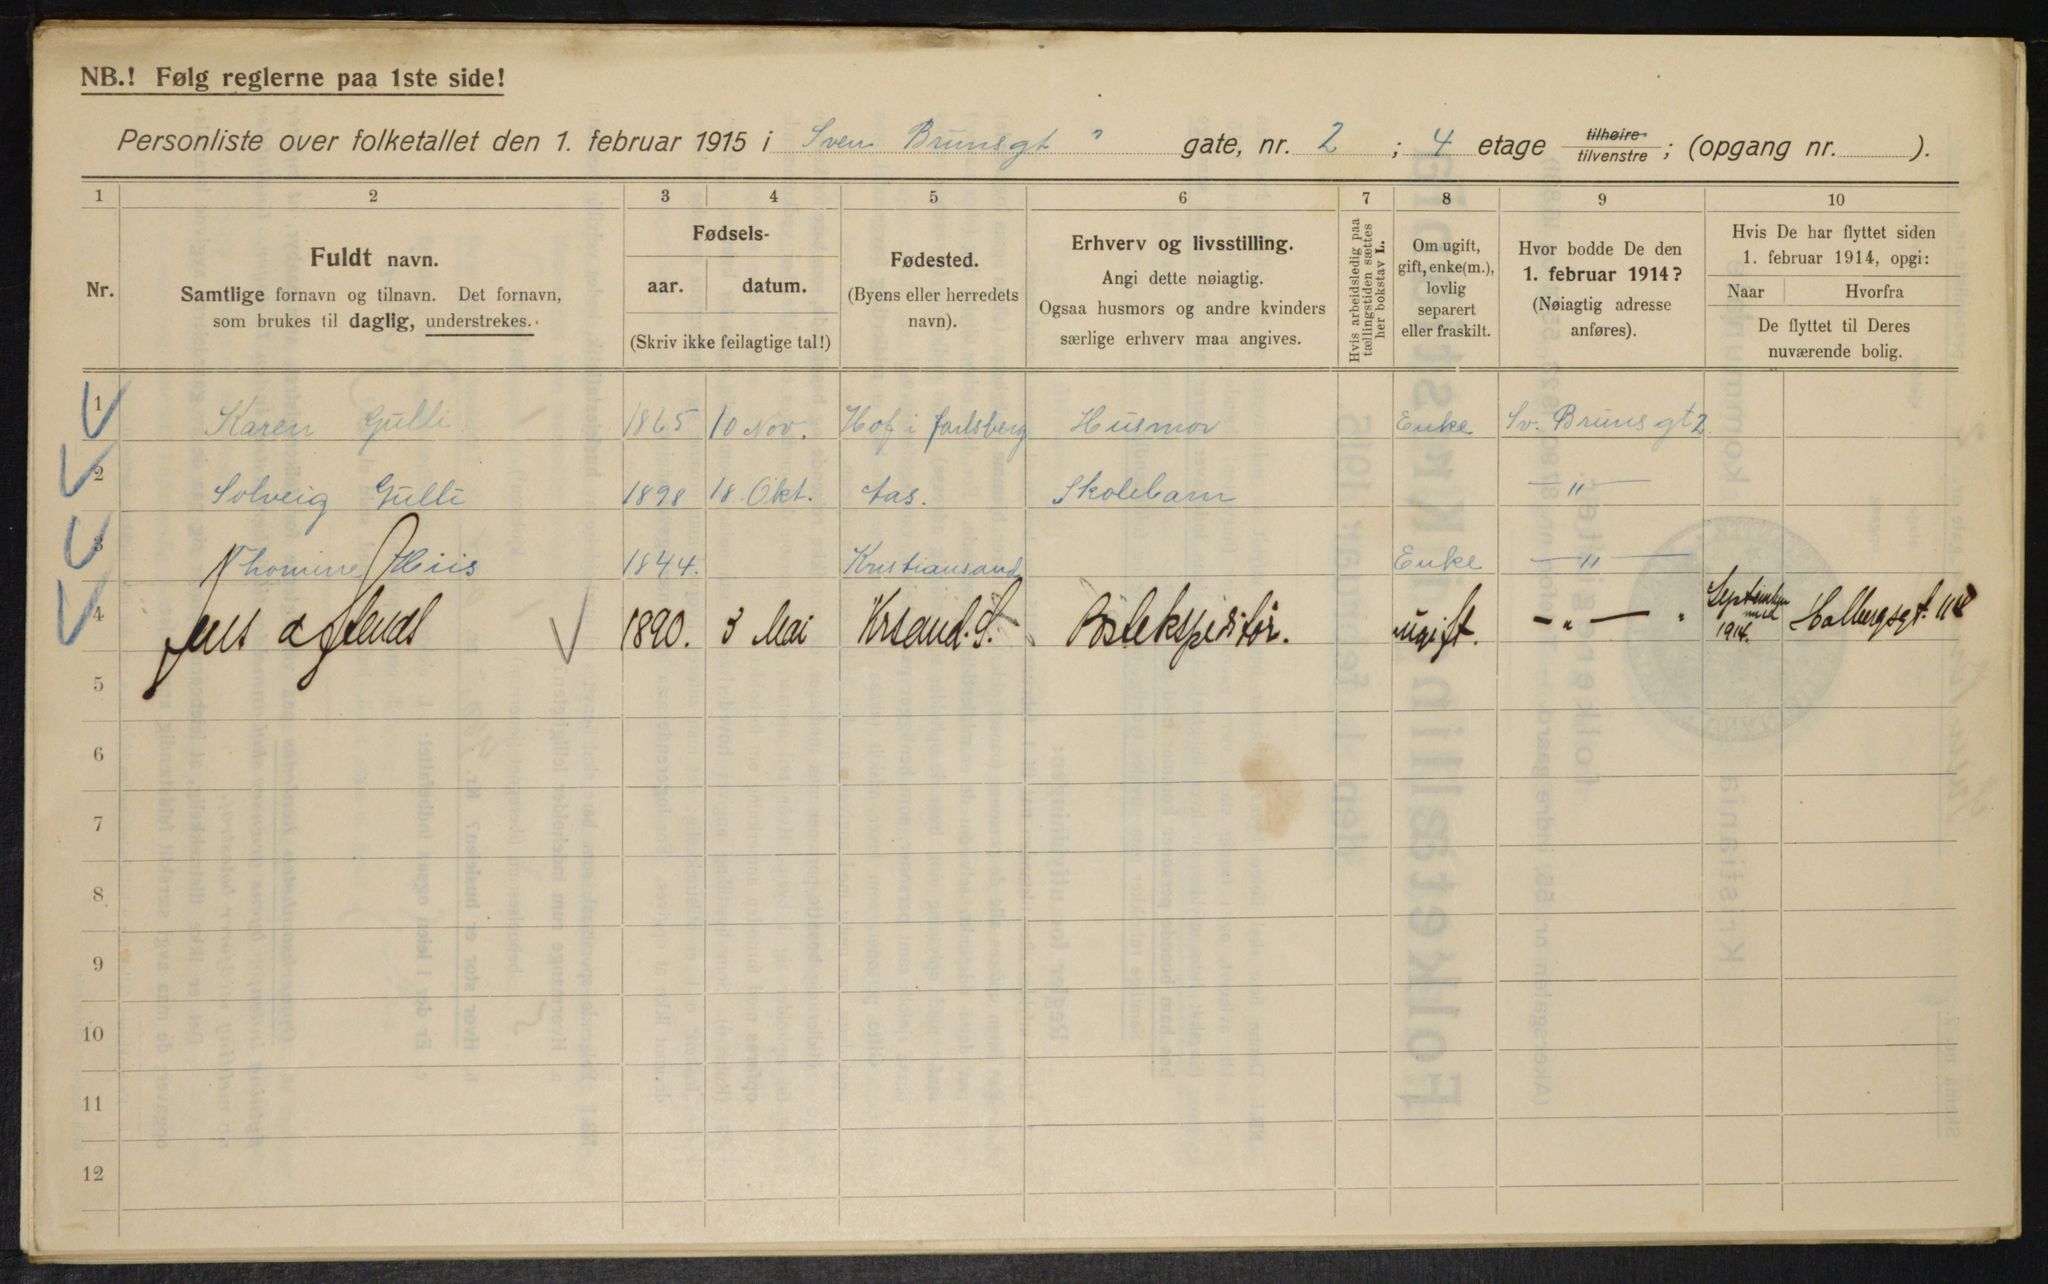 NB.! Følg reglerne paa 1ste side!
Personliste over folketallet den 1. februar 1915 i Sven Brunsgt " gate, nr. 2 ; 4 etage tilhøire/tilvenstre ; (opgang nr. ).
1 2 3 4 5 6 7 8 9 10
Nr.
Fuldt navn.
Samtlige fornavn og tilnavn. Det fornavn,
som brukes til daglig, understrekes.
Fødsels-
aar. datum.
(Skriv ikke feilagtige tal!)
Fødested.
(Byens eller herredets
navn).
Erhverv og livsstilling.
Angi dette nøiagtig.
Ogsaa husmors og andre kvinders
særlige erhverv maa angives.
Hvis arbeidsledig paa
tællingstiden sættes
her bokstav L.
Om ugift,
gift, enke(m.),
lovlig
separert
eller fraskilt.
Hvor bodde De den
1. februar 1914?
(Nøiagtig adresse
anføres).
Hvis De har flyttet siden
1. februar 1914, opgi:
Naar Hvorfra
De flyttet til Deres
nuværende bolig.
1 Karen Gulli 1865 10 Nov. Hof i Jarlsberg Husmor Enke Sv. Bruns gt 2
2 Solveig Gulli 1898 18. Okt. tas. Skolebarn — " —
3 Thomine Hiis 1844. Kristiansand Enke — " —
4 Jens 1890. 3 Mai Krsand. S. Postekspeditør. ugift. - " — " September 1914. Holbergsgt.
5
6
7
8
9
10
11
12